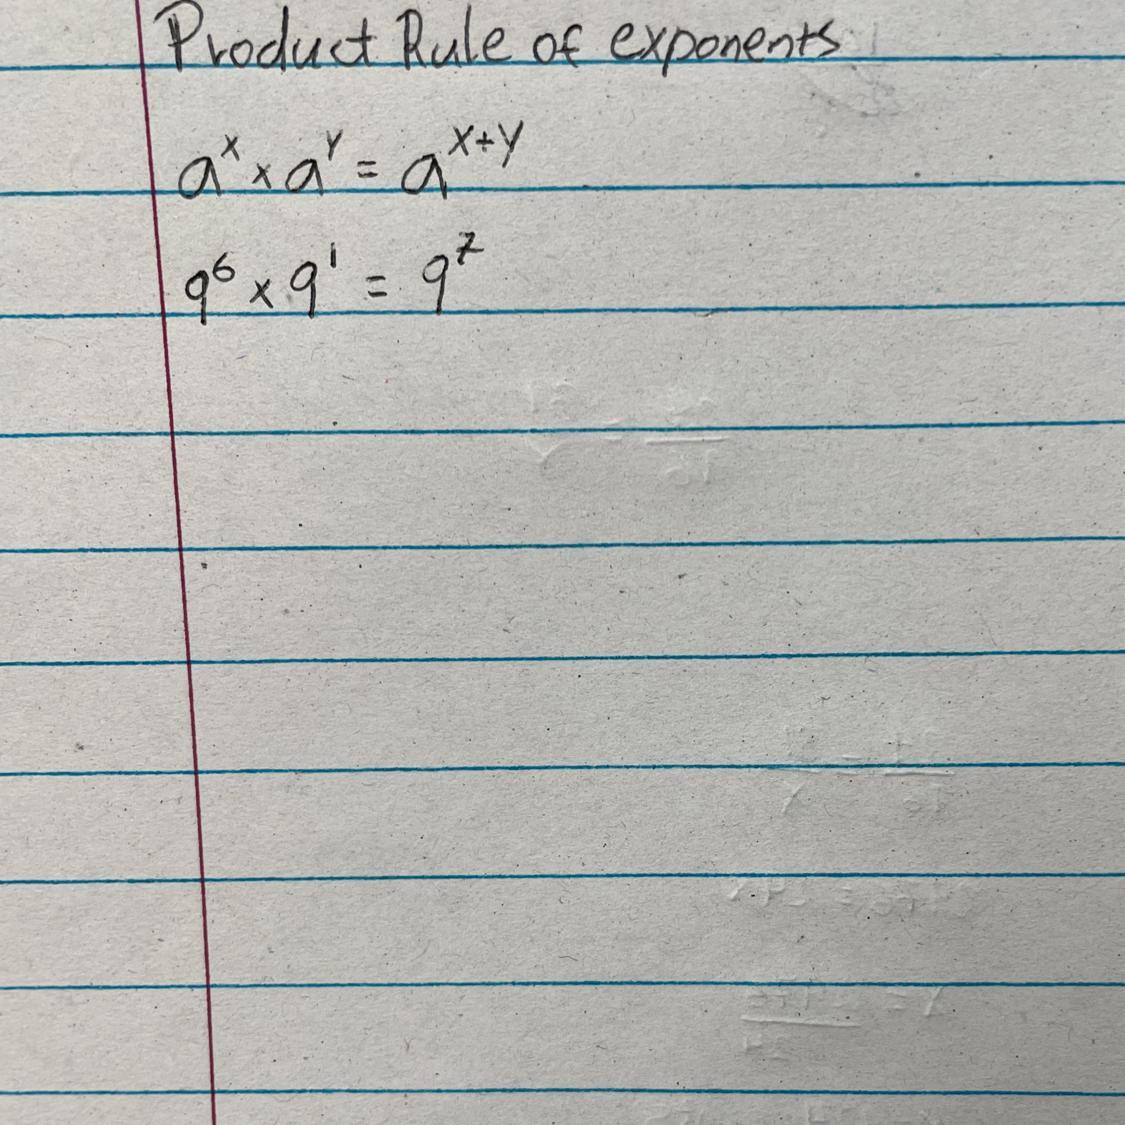 Product Rule of exponents
aˣ × aʸ = aˣ⁺ʸ
9⁶ × 9¹ = 9⁷